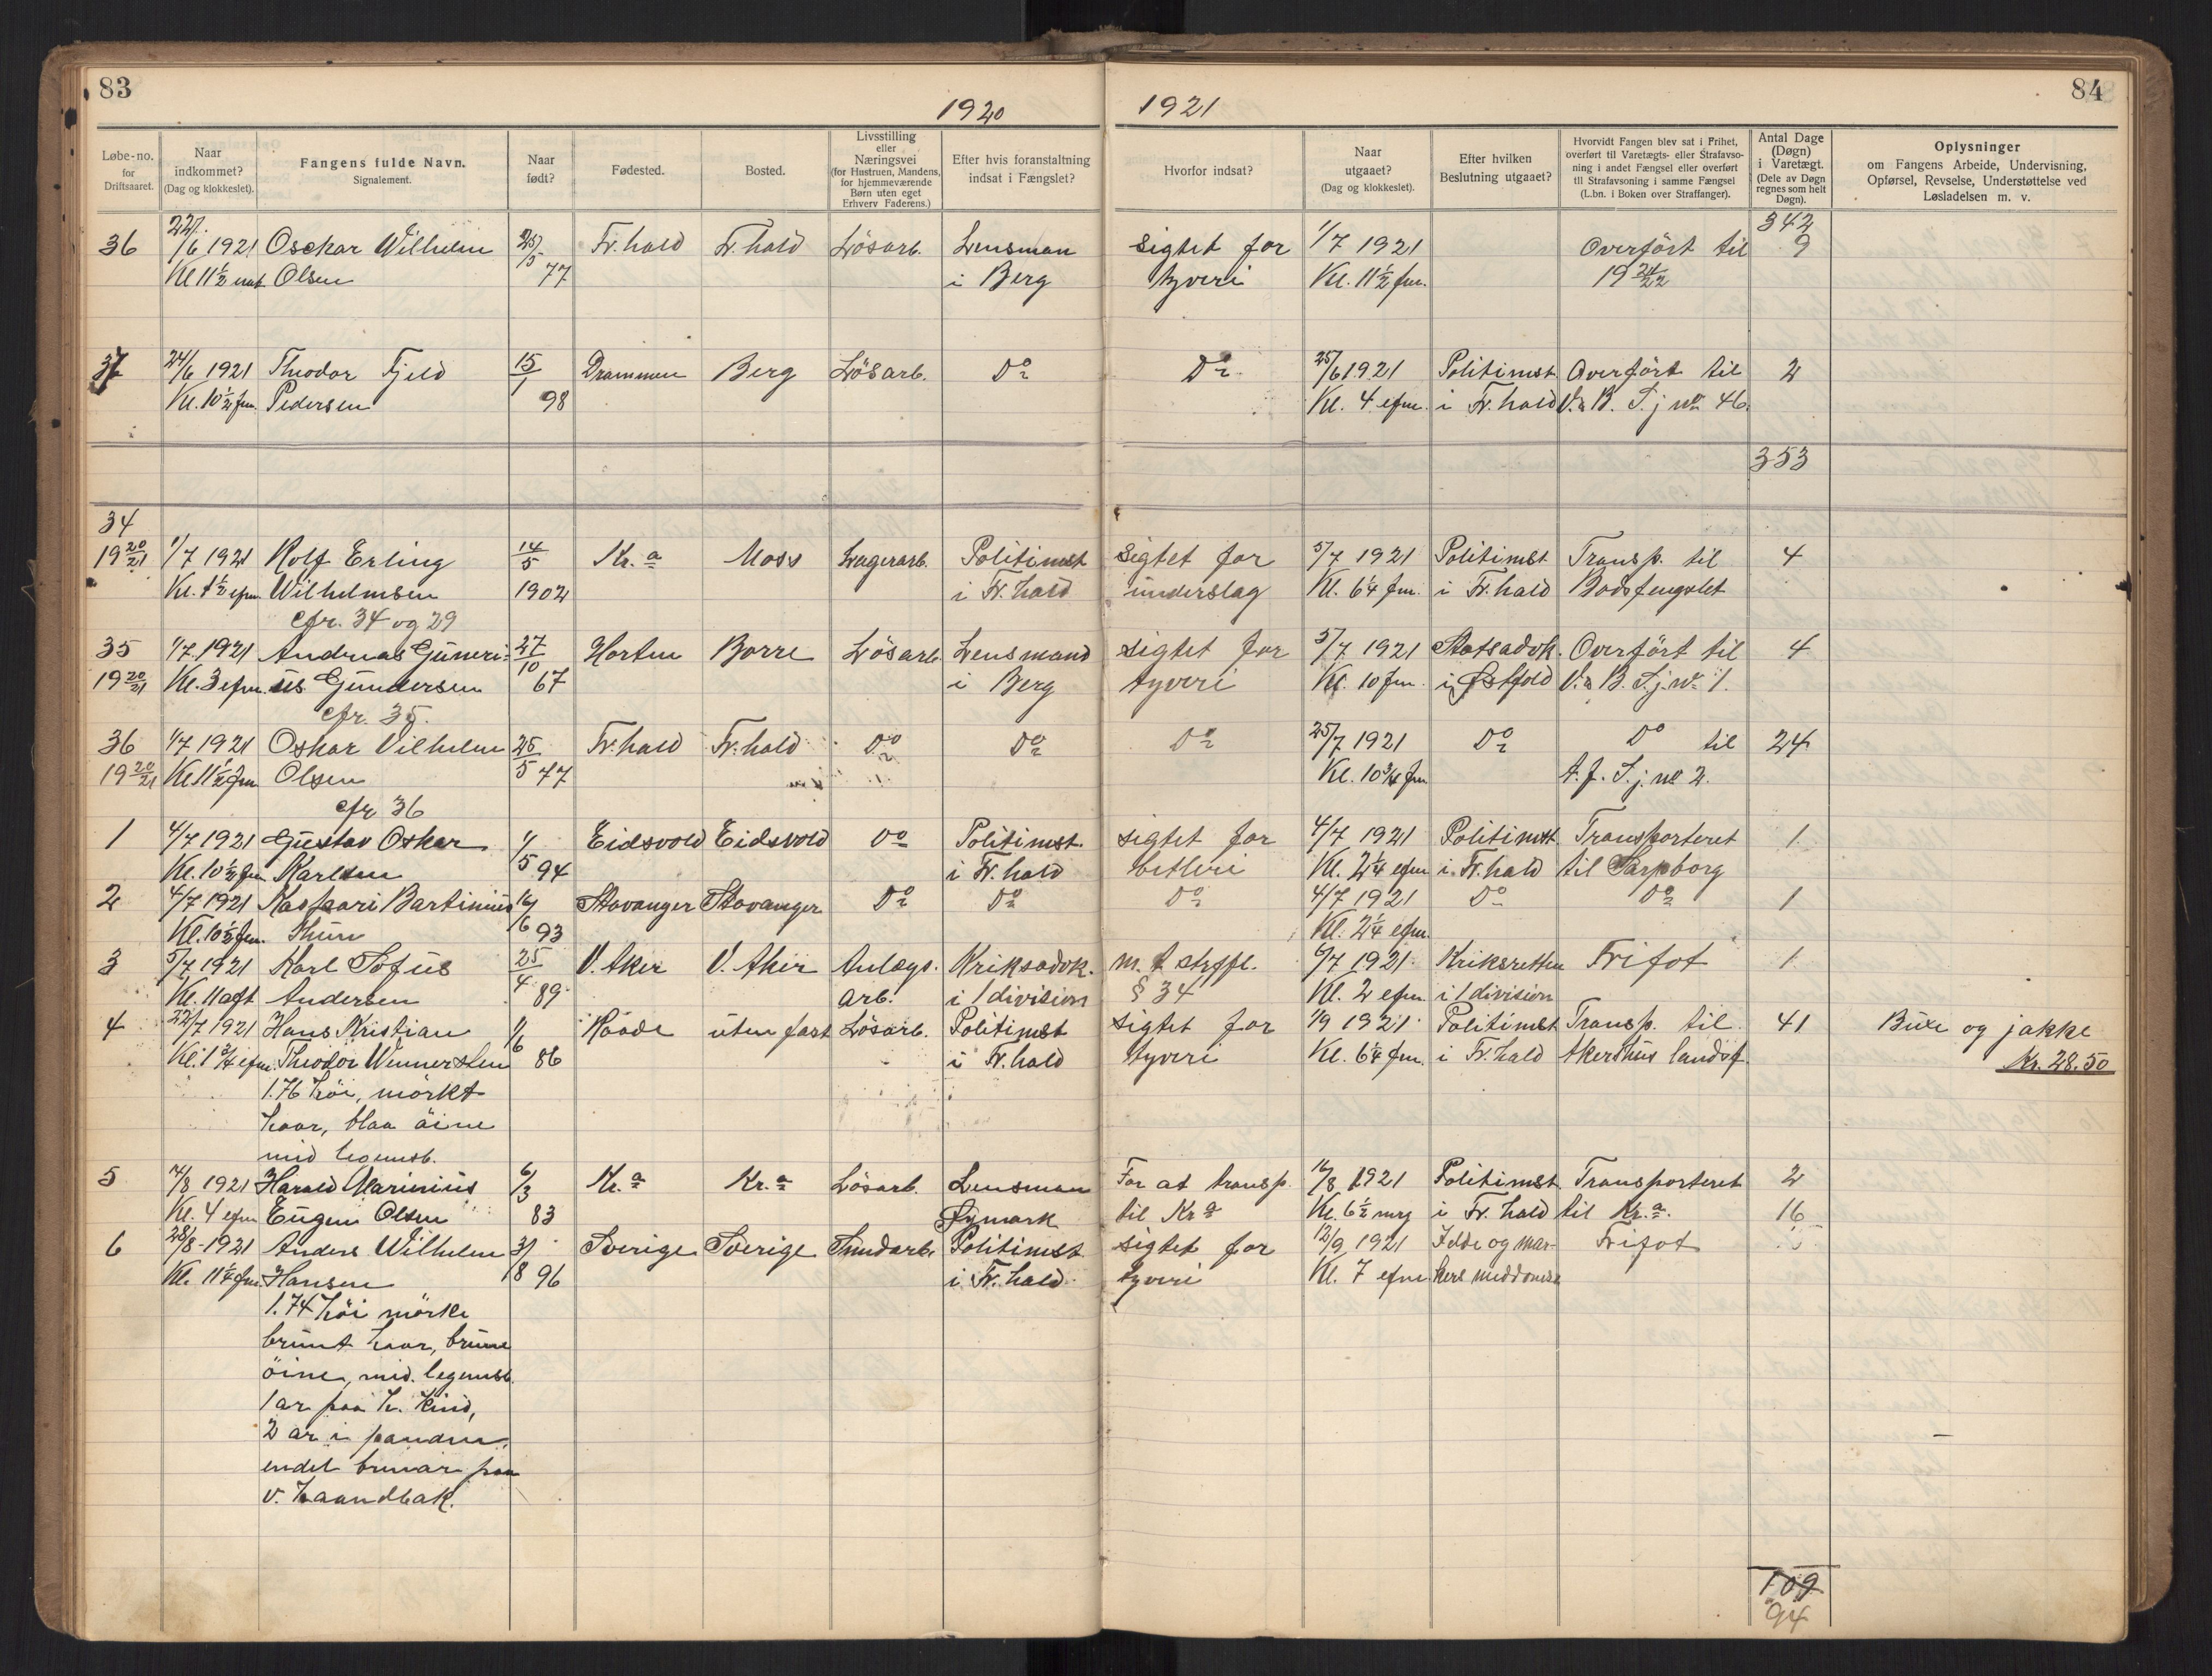 83
1920
Løbe-no. for Driftsaaret.
Naar indkommet? (Dag og klokkeslet).
Fangens fulde Navn. Signalement.
Naar født?
Fødested.
Bosted.
Livsstilling eller Næringsvei (for Hustruen, Mandens, for hjemmeværende Børn uten eget Erhverv Faderens.)
Efter hvis foranstaltning indsat i Fængslet?
1921
84
Hvorfor indsat?
Naar utgaaet? (Dag og klokkeslet).
Efter hvilken Beslutning utgaaet?
Hvorvidt Fangen blev sat i Frihet, overført til Varetægts- eller Strafavsoning i andet Fængsel eller overført til Strafavsoning i samme Fængsel (L.bn. i Boken over Straffanger).
Antal Dage (Døgn) i Varetægt. (Dele av Døgn regnes som helt Døgn).
Oplysninger om Fangens Arbeide, Undervisning, Opførsel, Revselse, Understøttelse ved Løsladelsen m. v.
342
36 22/6 1921 Osckar Wilhelm 25/5 Fr.hald Fr.hald Lösarb. Lensman sigtet for 1/7 1921 Overfört til 9
Kl 11 1/2 nat Olsen 77 i Berg tyveri Kl. 11 1/2 fm. 19 21/22
37 24/6 1921 Theodor Fjeld 15/1 Drammen Berg Lösarb. Do Do 25/6 1921 Politimst Overfört til 2
Kl. 10 1/2 fm. Pedersen 98 Kl. 4 efm. i Fr.hald V.&B. S.j no 46.
353
34
19 20/21 1/7 1921 Rolf Erling 14/5 Kr.a Moss Lagerarb. Politimst sigtet for 5/7 1921 Politimst Transp. til 4
Kl. 1 1/2 efm. Wilhelmsen 1902 i Fr.hald underslag Kl. 6 1/4 fm. i Fr.hald Bodsfengslet
cfr. 34 og 29
35 1/7 1921 Andreas Guneri- 27/10 Horten Borre Lösarb. Lensmand sigtet for 5/7 1921 Statsadvk. Overfört til 4
19 20/21 Kl. 3 efm. us Gundersen 67 i Berg tyveri Kl. 10 fm. i Østfold V.&B. S.j. no 1.
cfr. 35.
36 1/7 1921 Oskar Vilhelm 25/5 Fr.hald Fr.hald Do Do Do 25/7 1921 Do Do til 24
19 20/21 Kl 11 1/2 fm Olsen 77 Kl. 10 3/4 fm A.f. S.j. no 2.
cfr 36
1 4/7 1921 Gustav Oskar 1/5 Eidsvold Eidsvold Do Politimst. sigtet for 4/7 1921 Politimst Transporteret 1
Kl. 10 1/2 fm Karlsen 94 i Fr.hald betleri Kl. 2 1/4 efm i Fr.hald til Sarpborg
2 4/7 1921 Kaspari Bartinius 16/6 Stavanger Stavanger Do Do Do 4/7 1921 Do Do 1
Kl. 10 1/2 fm. Thun 93 Kl. 2 1/4 efm.
3 5/7 1921 Karl Sofus 25/4 V. Aker V. Aker Anlægs. Kriksadvk. m. t strfpl. 6/7 1921 Kriksretten Frifot 1
Kl. 11 aft Andersen 89 arb. i 1 division § 34 Kl. 2 efm i 1 division
4 22/7 1921 Hans Kristian 1/6 Raade uten fast Lösarb. Politimst sigtet for 1/9 1921 Politimst Transp. til 41 Buxe og jakke
Kl. 1 3/4 efm. Theodor Wennersten 86 i Fr.hald tyveri Kl. 6 1/4 fm. i Fr.hald Akershus landsf. Kr. 28.50
1.76 höi, mörkt
haar, blaa öine
mid legemsb.
5 7/8 1921 Harald Marinius 6/3 Kr.a Kr.a Lösarb. Lensman For at transp. 16/8 1921 Politimst Transporteret 2
Kl. 4 efm Eugen Olsen 83 Øymark til Kr.a Kl. 6 1/2 mrg i Fr.hald til Kr.a. 16
6 28/8-1921 Anders Wilhelm 31/8 Sverige Sverige Politimst sigtet for 12/9 1921 Idde og mar- Frifot
Kl. 11 1/4 fm. Hansen 96 i Fr.hald tyveri Kl. 7 efm kers meddomsr
1.74 höi mörke
brunt haar, brune
öine, mid. legemsb.
1 ar paa h. kind,
2 ar i panden,
endel brunar paa
v. haandbak.
109
94